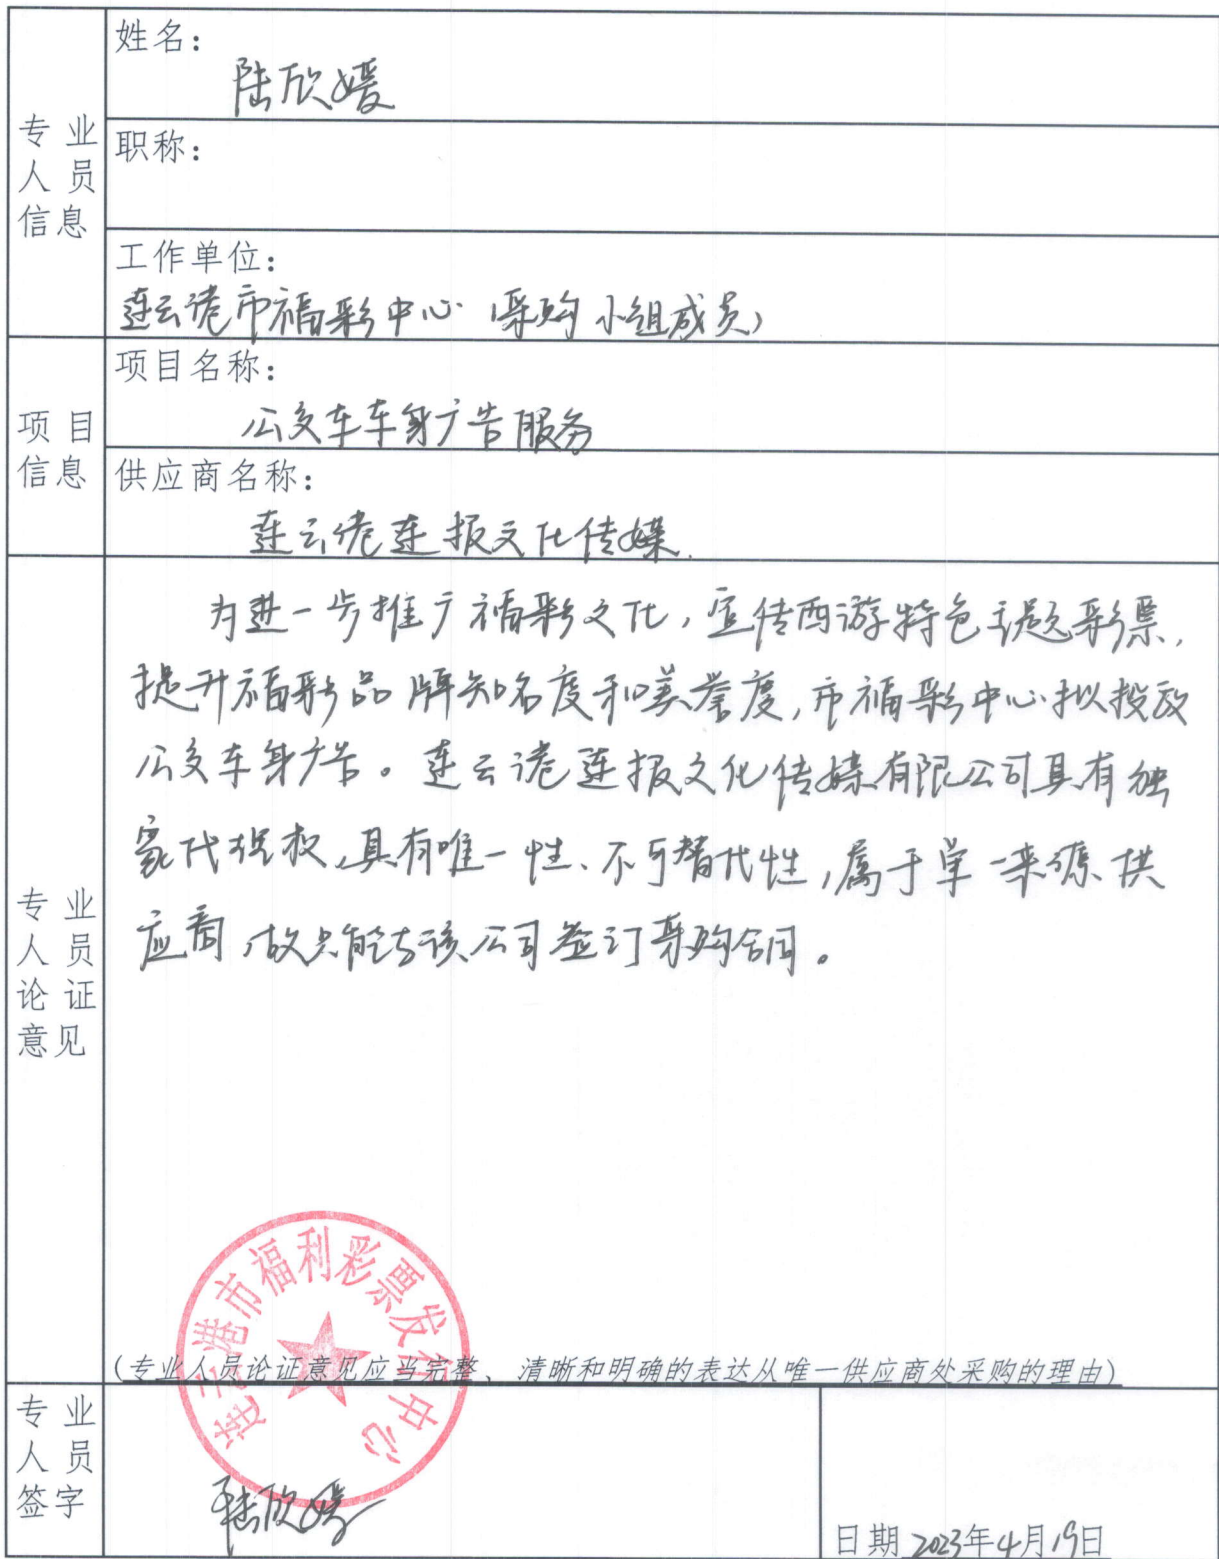 专业人员信息
姓名：
陆欣媛
职称：
工作单位：
连云港市福彩中心（采购小组成员）
项目信息
项目名称：
公交车车身广告服务
供应商名称：
连云港连报文化传媒.
专业人员论证意见
为进一步推广福彩文化，宣传西游特色主题彩票，
提升福彩品牌知名度和美誉度，市福彩中心拟投放
公交车身广告。连云港连报文化传媒有限公司具有独
家代理权，具有唯一性、不可替代性，属于单一来源供
应商，故只能与该公司签订采购合同。
连云港市福利彩票发行中心
（专业人员论证意见应当完整、清晰和明确的表达从唯一供应商处采购的理由）
专业人员签字
陆欣媛
日期 2023年4月19日